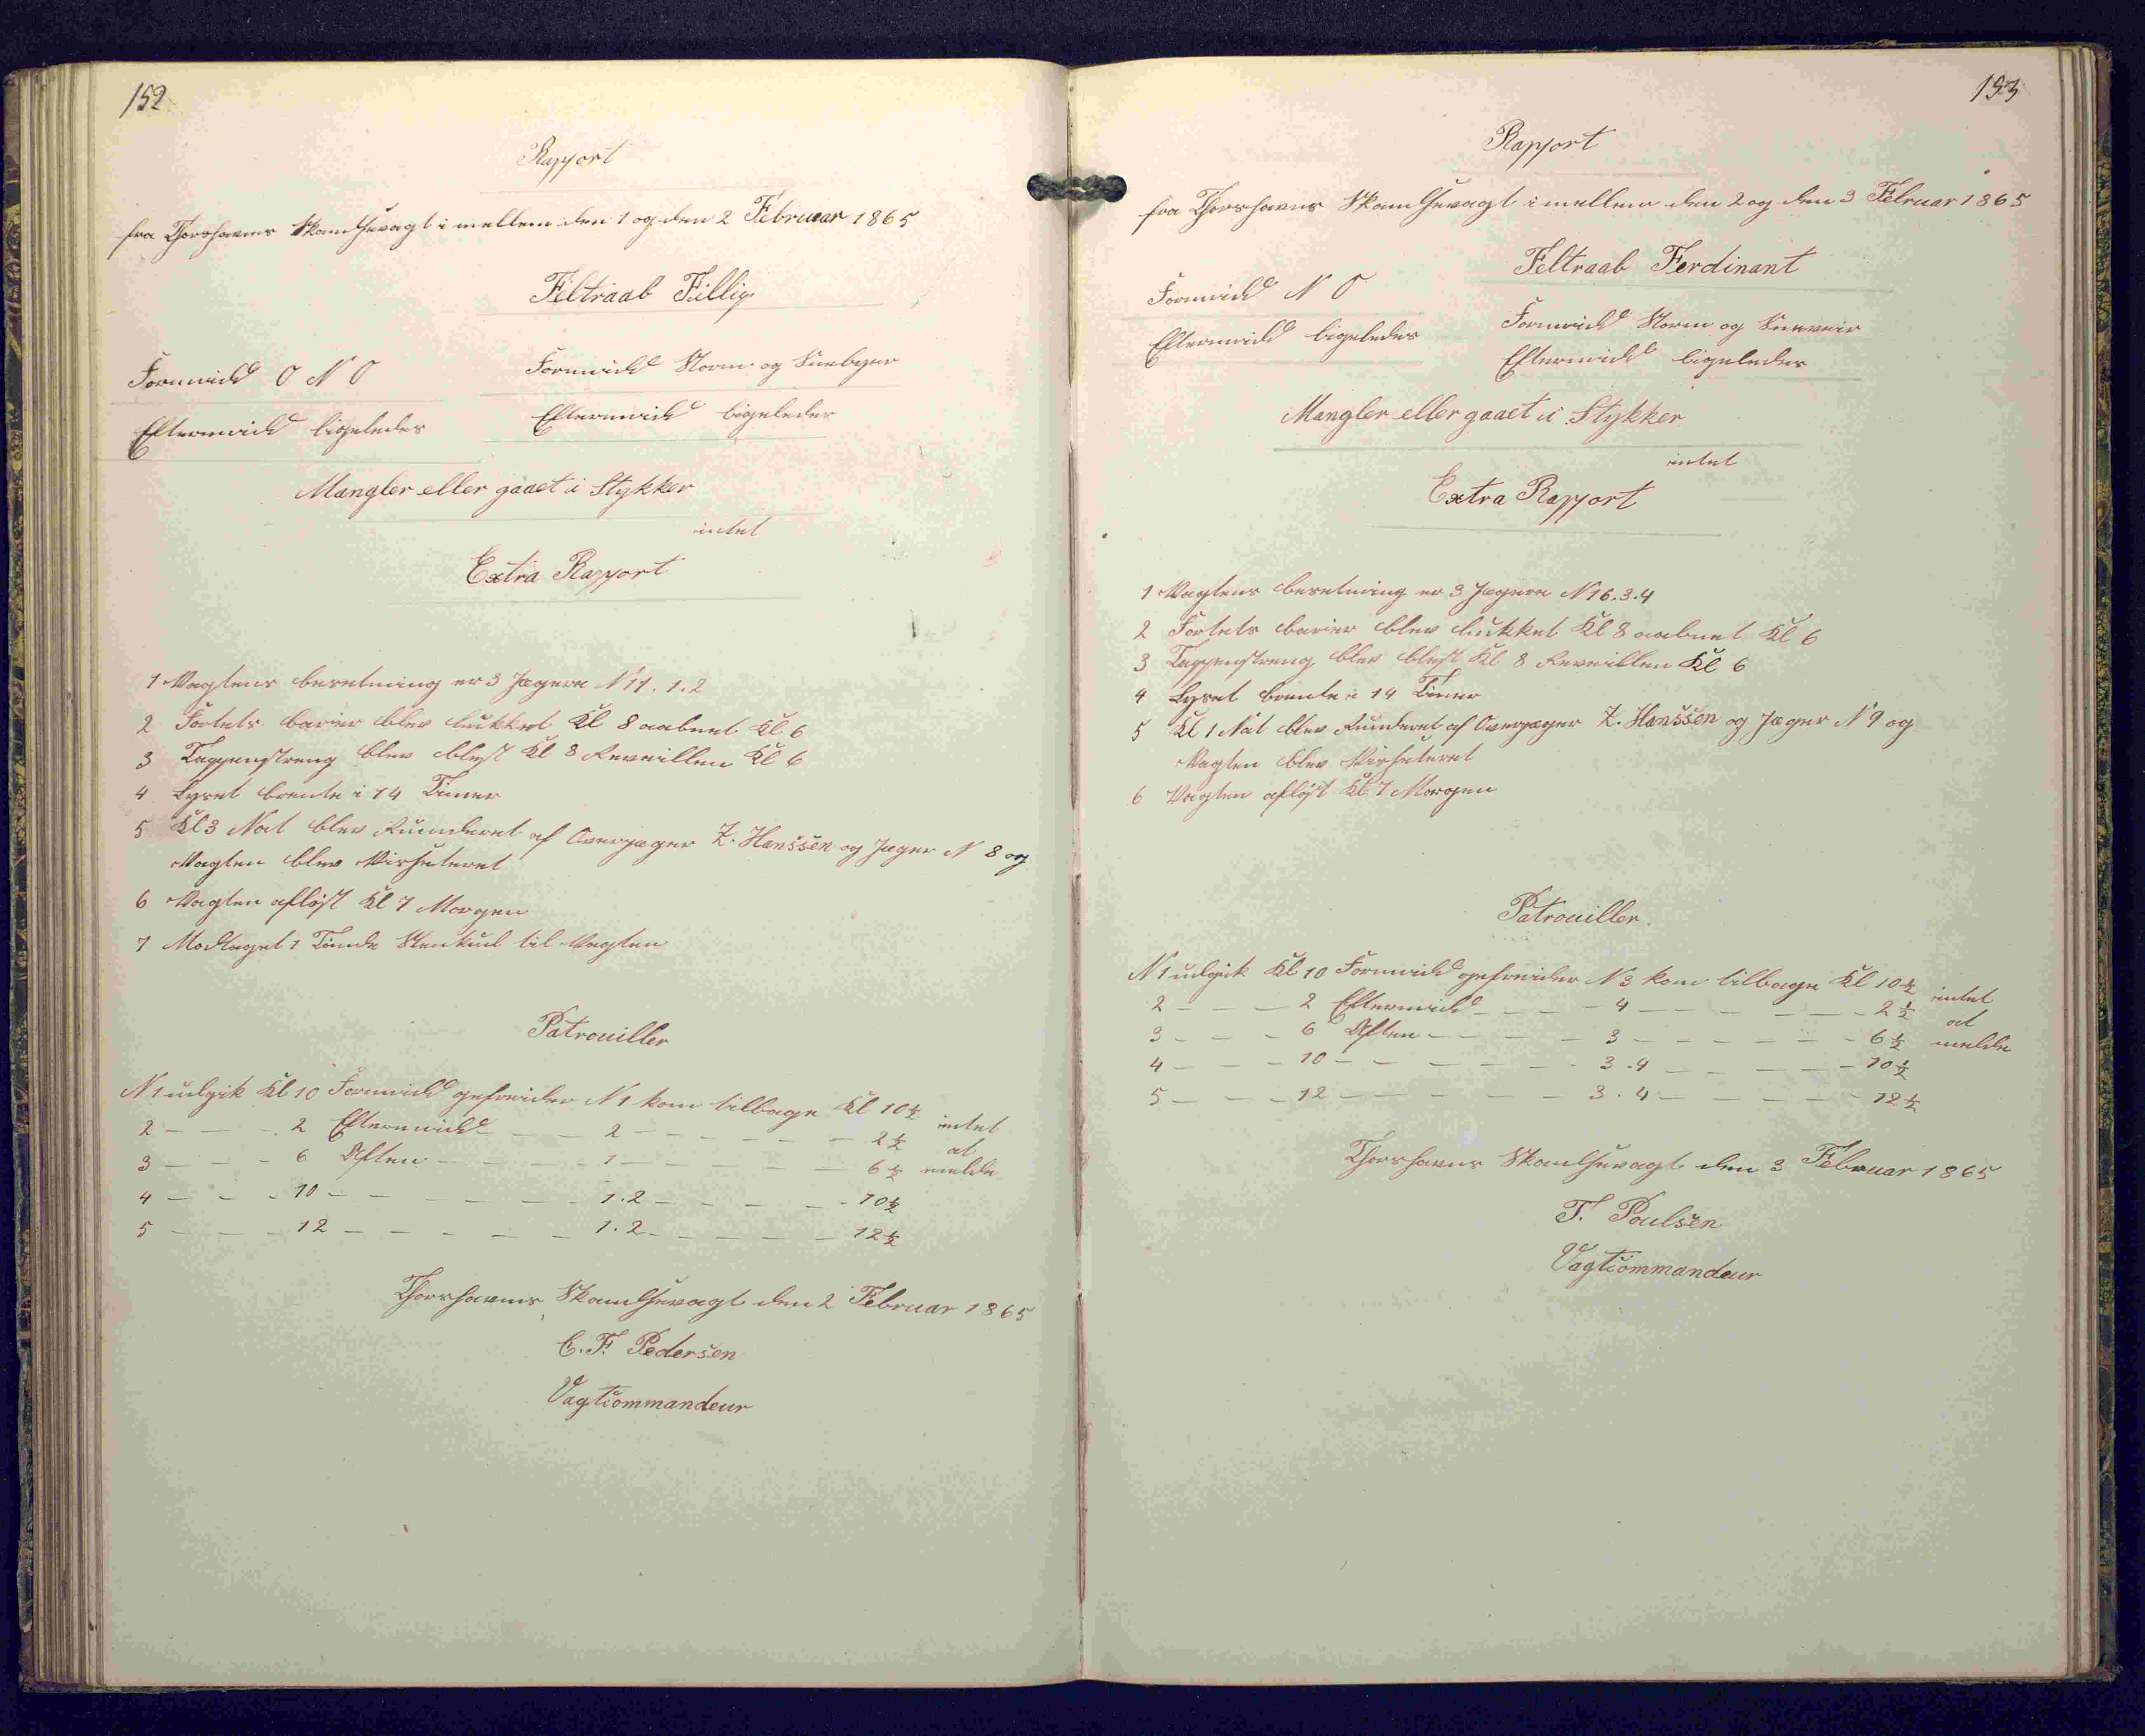 152
Rapport
fra Thorshavns Skandsevagt i mellem den 1 og den 2 Februar 1865
Feltraab Fillip
Formidd O N O
Formidd Storm og Sneebyer
Eftermidd ligeledes
Eftermidd ligeledes
Mangler eller gaaet i Stykker
intet
Extra Rapport
1 Vagtens besetning er 3 Jægere N 11. 1. 2
2 Fortets barier blev lukket Kl 8 aabnet Kl 6
3 Tappenstreng blev blest Kl 8 Reveillen Kl 6
4 Lyset brente i 14 Timer
5 Kl 3 Nat blev Runderet af Overjæger Z. Hanssen og Jæger N 8 og
Vagten blev Visiteret
6 Vagten afløst Kl 7 Morgen
7 Modtaget 1 Tønde Stenkul til Vagten
Patrouiller
N 1 udgik Kl 10 Formidd gefreider N 1 kom tilbage Kl 10½ intet
2 - - - 2 Eftermidd - - - 2 - - - - - - 2½ at
3 - - - 6 Aften - - - - 1 - - - - - - 6½ melde
4 - - - 10 - - - - - - 1. 2 - - - - - 10½
5 - - - 12 - - - - - - 1. 2 - - - - - 12½
Thorshavns Skandsevagt den 2 Februar 1865
C. F. Pedersen
Vagtcommandeur
153
Rapport
fra Thorshavns Skandsevagt i mellem den 2 og den 3 Februar 1865
Feltraab Ferdinant
Formidd N O
Formidd Storm og Sneeveir
Eftermidd ligeledes
Eftermidd ligeledes
Mangler eller gaaet i Stykker
intet
Extra Rapport
1 Vagtens besetning er 3 Jægere N 16. 3. 4
2 Fortets barier blev lukket Kl 8 aabnet Kl 6
3 Tappenstreng blev blest Kl 8 Reveillen Kl 6
4 Lyset brente i 14 Timer
5 Kl 1 Nat blev Runderet af Overjæger Z. Hanssen og Jæger N 9 og
Vagten blev Visiteret
6 Vagten afløst Kl 7 Morgen
Patrouiller
N 1 udgik Kl 10 Formidd gefreider N 3 kom tilbage Kl 10½ intet
2 - - - 2 Eftermidd - - - 4 - - - - - - 2½ at
3 - - - 6 Aften - - - - 3 - - - - - - 6½ melde
4 - - - 10 - - - - - - 3. 4 - - - - - 10½
5 - - - 12 - - - - - - 3. 4 - - - - - 12½
Thorshavns Skandsevagt den 3 Februar 1865
T. Poulsen
Vagtcommandeur